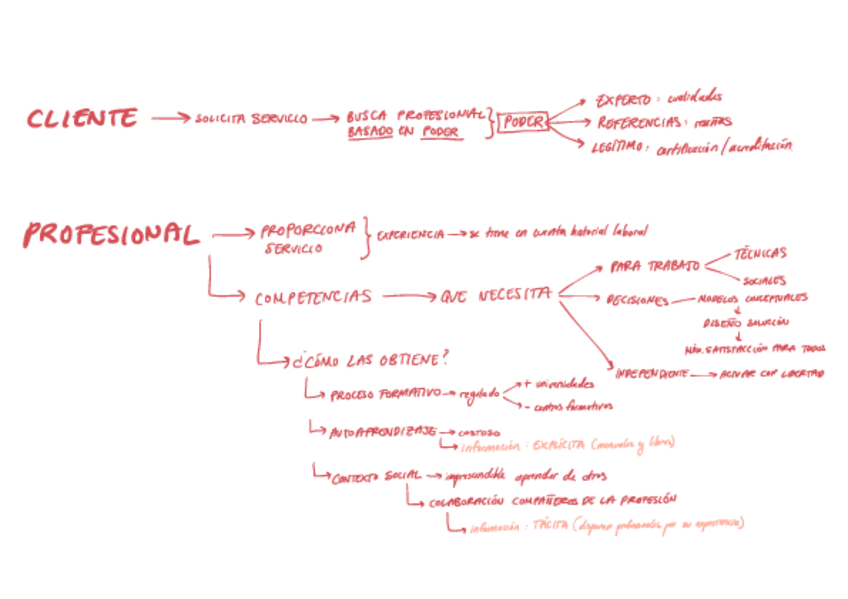 CLIENTE → SOLICITA SERVICIO → BUSCA PROFESIONAL
BASADO EN PODER
PODER
EXPERTO: cualidades
REFERENCIAS: reseñas
LEGÍTIMO: certificación/acreditación
PROFESIONAL → PROPORCIONA
SERVICIO
EXPERIENCIA → se tiene en cuenta historial laboral
COMPETENCIAS → QUE NECESITA
PARA TRABAJO
TÉCNICAS
SOCIALES
DECISIONES — MODELOS CONCEPTUALES
DISEÑO SOLUCIÓN
MÁX. SATISFACCIÓN PARA TODOS
INDEPENDIENTE → ACTUAR CON LIBERTAD
¿CÓMO LAS OBTIENE?
PROCESO FORMATIVO → regulado
+ universidades
- centros formativos
AUTOAPRENDIZAJE → COSTOSO
información: EXPLÍCITA (manuales y libros)
CONTEXTO SOCIAL → imprescindible aprender de otros
COLABORACIÓN COMPAÑEROS DE LA PROFESIÓN
información: TÁCITA (disponen profesionales por su experiencia)